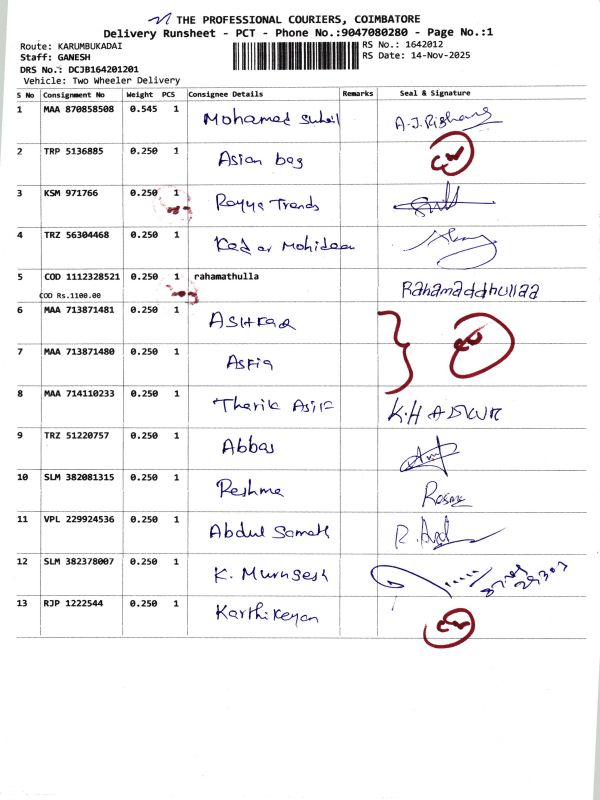 THE PROFESSIONAL COURIERS, COIMBATORE
Delivery Runsheet - PCT - Phone No.:9047080280 - Page No.:1
Route: KARUMBUKADAI RS No.: 1642012
Staff: GANESH RS Date: 14-Nov-2025
DRS No.: DCJB164201201
Vehicle: Two Wheeler Delivery
S No Consignment No Weight PCS Consignee Details Remarks Seal & Signature
1 MAA 870858508 0.545 1 Mohamed Suhail A.J.Rishang
2 TRP 5136885 0.250 1 Asian bag
3 KSM 971766 0.250 1 Rayya Trends
4 TRZ 56304468 0.250 1 Kedar Mohideen
5 COD 1112328521 0.250 1 rahamathulla Rahamaddhullaa
COD Rs.1100.00
6 MAA 713871481 0.250 1 ASHKAR
7 MAA 713871480 0.250 1 Asfia
8 MAA 714110233 0.250 1 Tharik Asif K.H ASKUR
9 TRZ 51220757 0.250 1 Abbas
10 SLM 382081315 0.250 1 Reshma
11 VPL 229924536 0.250 1 Abdul Samath
12 SLM 382378007 0.250 1 K. Murugesh
13 RJP 1222544 0.250 1 Karthikeyan